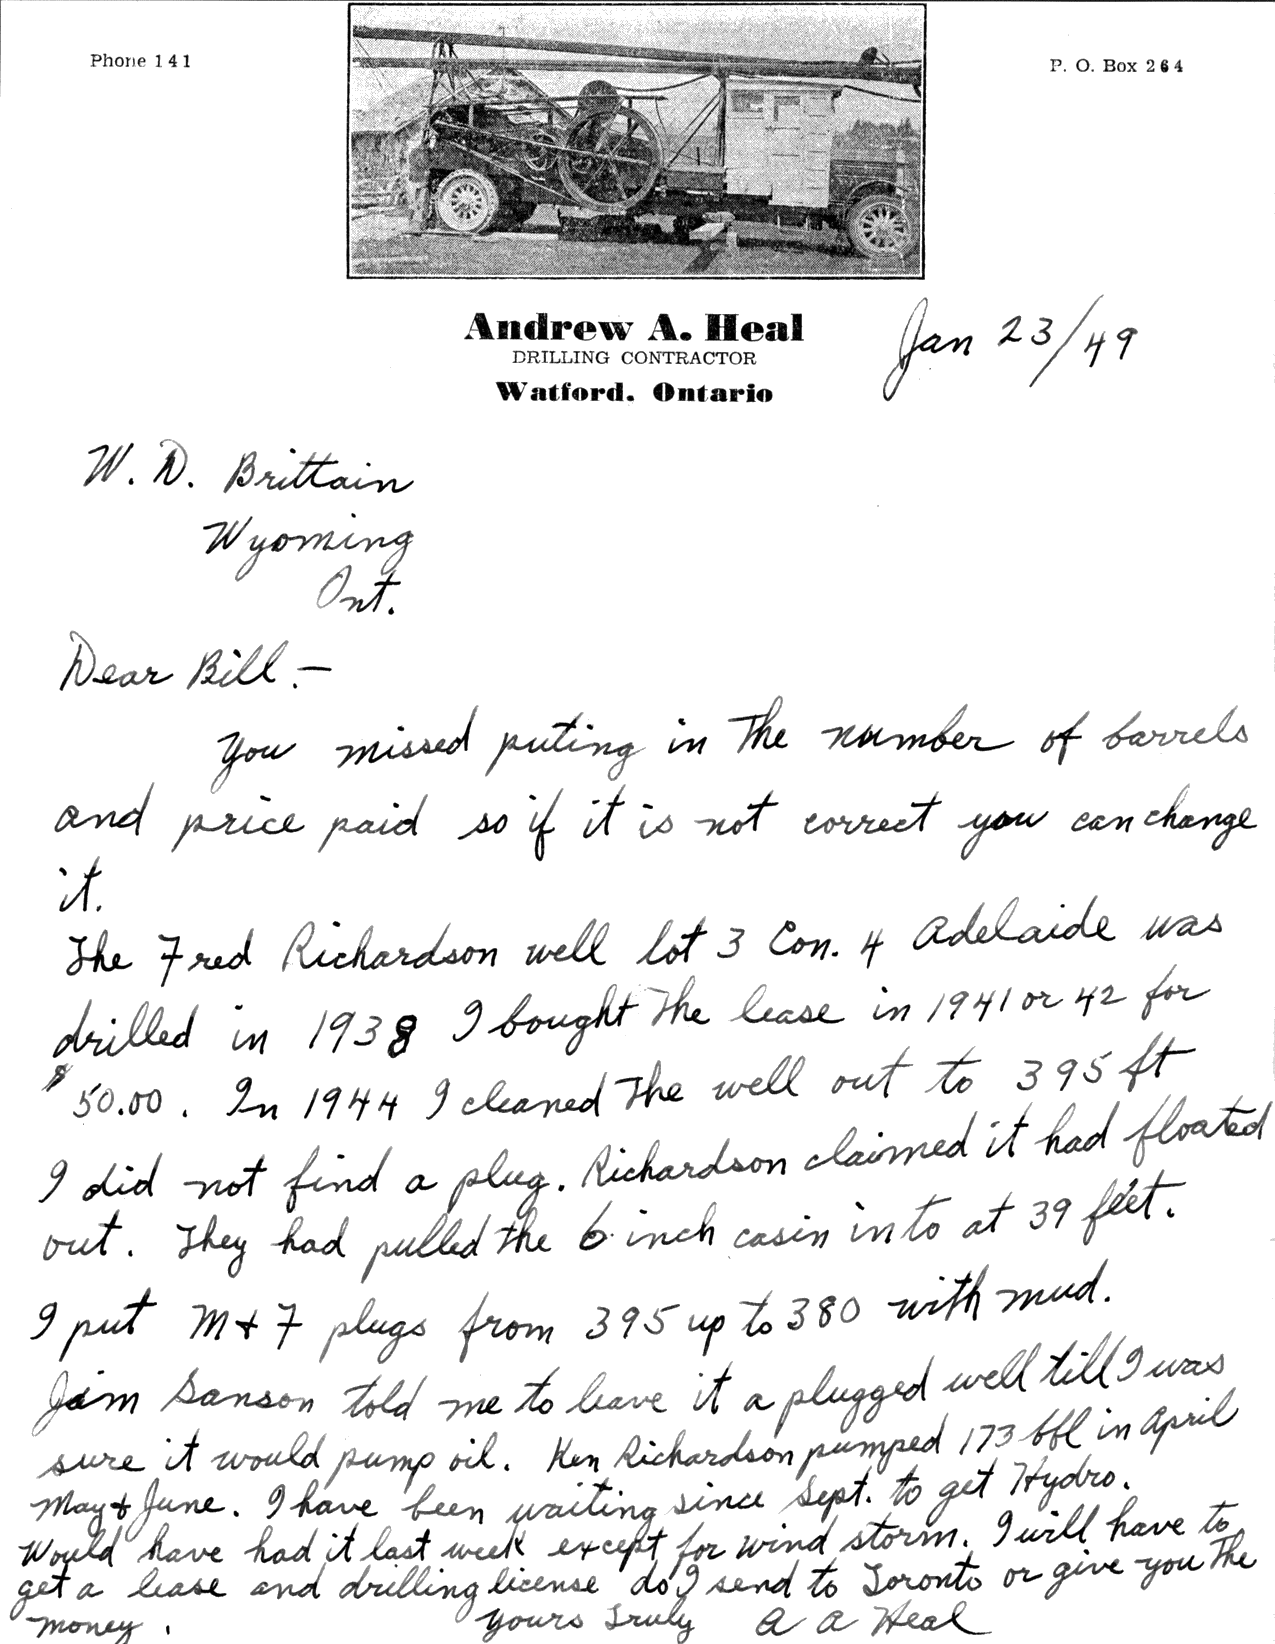 Phone 141
P. O. Box 264
Andrew A. Heal
DRILLING CONTRACTOR
Watford, Ontario
Jan 23/49
W. D. Brittain
Wyoming
Ont.
Dear Bill.—
You missed puting in the number of barrels
and price paid so if it is not correct you can change
it.
The Fred Richardson well lot 3 Con. 4 Adelaide was
drilled in 1938 I bought the lease in 1941 or 42 for
$50.00. In 1944 I cleaned the well out to 395 ft
I did not find a plug. Richardson claimed it had floated
out. They had pulled the 6 inch casin into at 39 feet.
I put M & F plugs from 395 up to 380 with mud.
Jim Sanson told me to leave it a plugged well till I was
sure it would pump oil. Ken Richardson pumped 173 bbl in April
May & June. I have been waiting since Sept. to get Hydro.
Would have had it last week except for wind storm. I will have to
get a lease and drilling license do I send to Toronto or give you the
money.
Yours Truly A A Heal